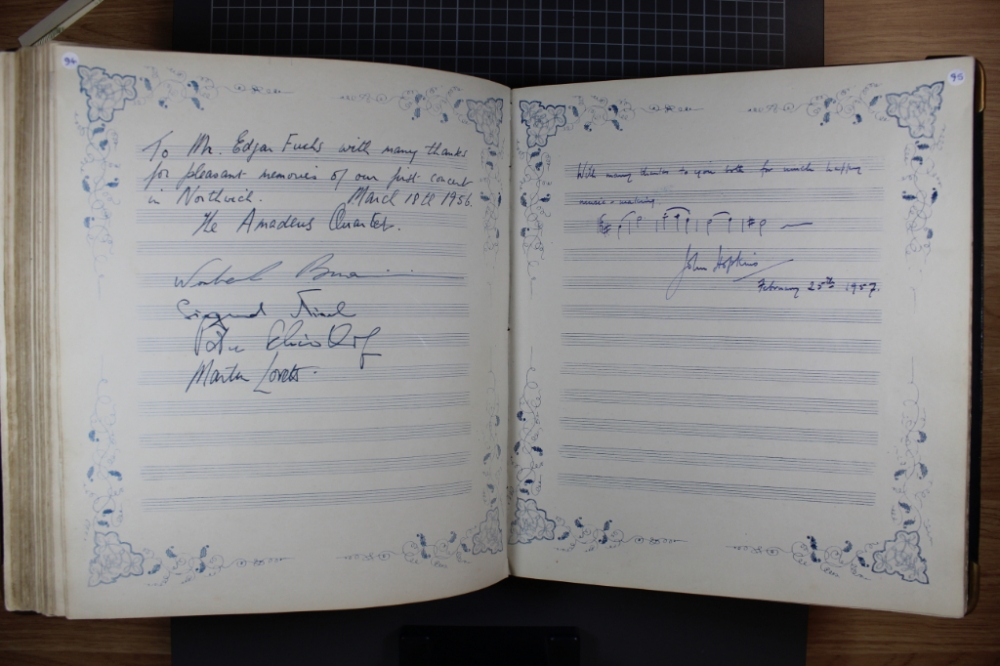 94
To Mr. Edgar Fuchs with many thanks
for pleasant memories of our first concert
in Northwich. March 18th 1956.
The Amadeus Quartet.
Siegmund Nissel
Peter Schidlof
Martin Lovett.
95
With many thanks to you both for much happy
music-making.
John Hopkins
February 25th 1957.